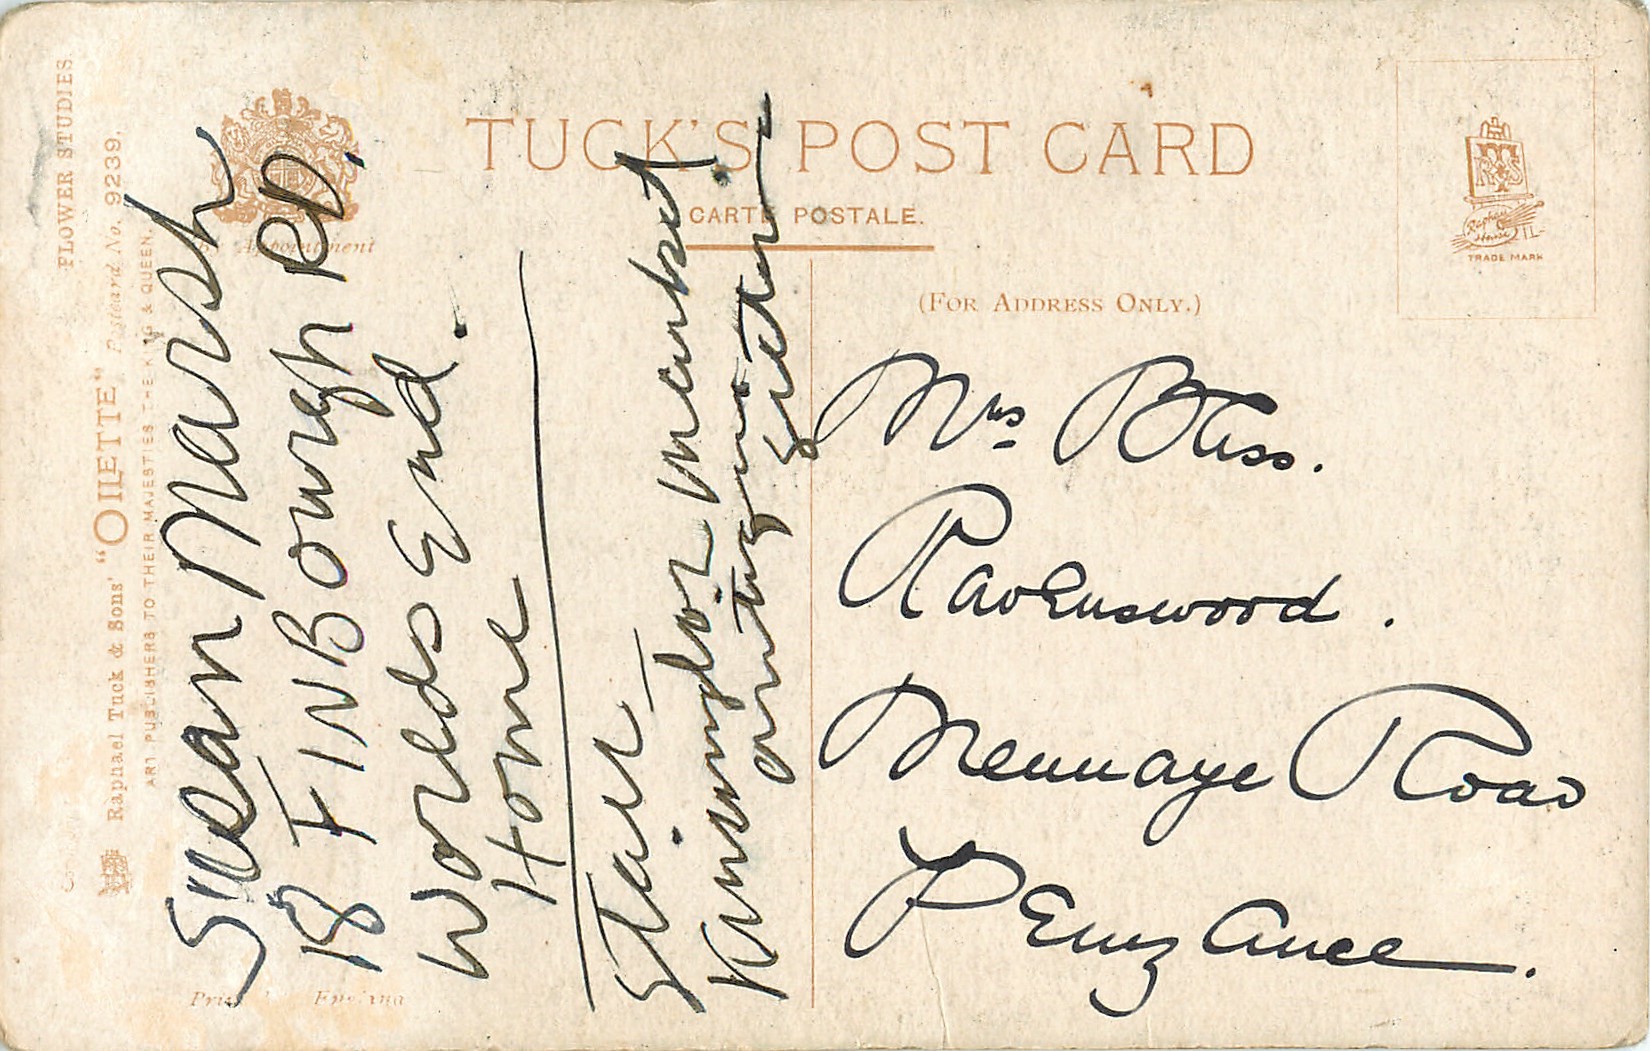 TUCK'S POST CARD
CARTE POSTALE.
(FOR ADDRESS ONLY.)
TRADE MARK
FLOWER STUDIES
Raphael Tuck & Sons' "OILETTE" Postcard No. 9239.
ART PUBLISHERS TO THEIR MAJESTIES THE KING & QUEEN.
By Appointment
Printed in England
Susan Marsh
18 FINBOUrgh RD.
Worlds End.
Home
Stair
market
antiques
Mrs Bliss.
Ravenswood.
Mennaye Road
Penzance.